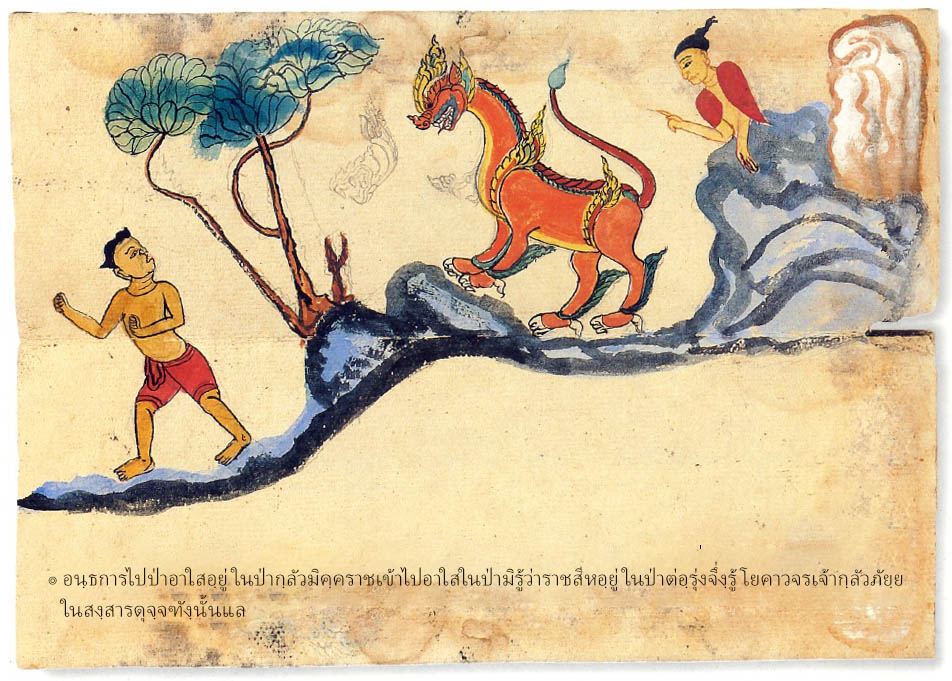 ๏ อนฺธการไปป่าอาใสอฺยู่ ในป่ากฺลัวมิคฺคราชเข้าไปอาใสในป่ามิรู้ว่าราชสีหอฺยู่ ในป่าต่อรุ่งจึ่งฺรู้ โยคาวจรเจ้ากฺลัวภัยฺย
ในสงฺสารดุจฺจทังฺนั้นแล